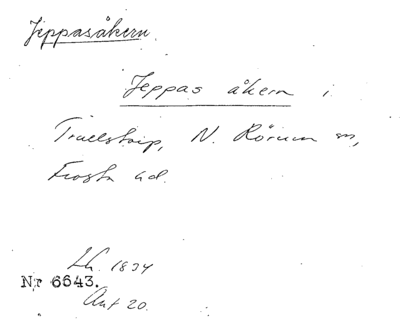 Jeppasåkern.
Jeppas åkern i
Truelstorp, N. Rörum sn,
Frosta hd.
Lh. 1834
Nr 6643.
Akt 20.